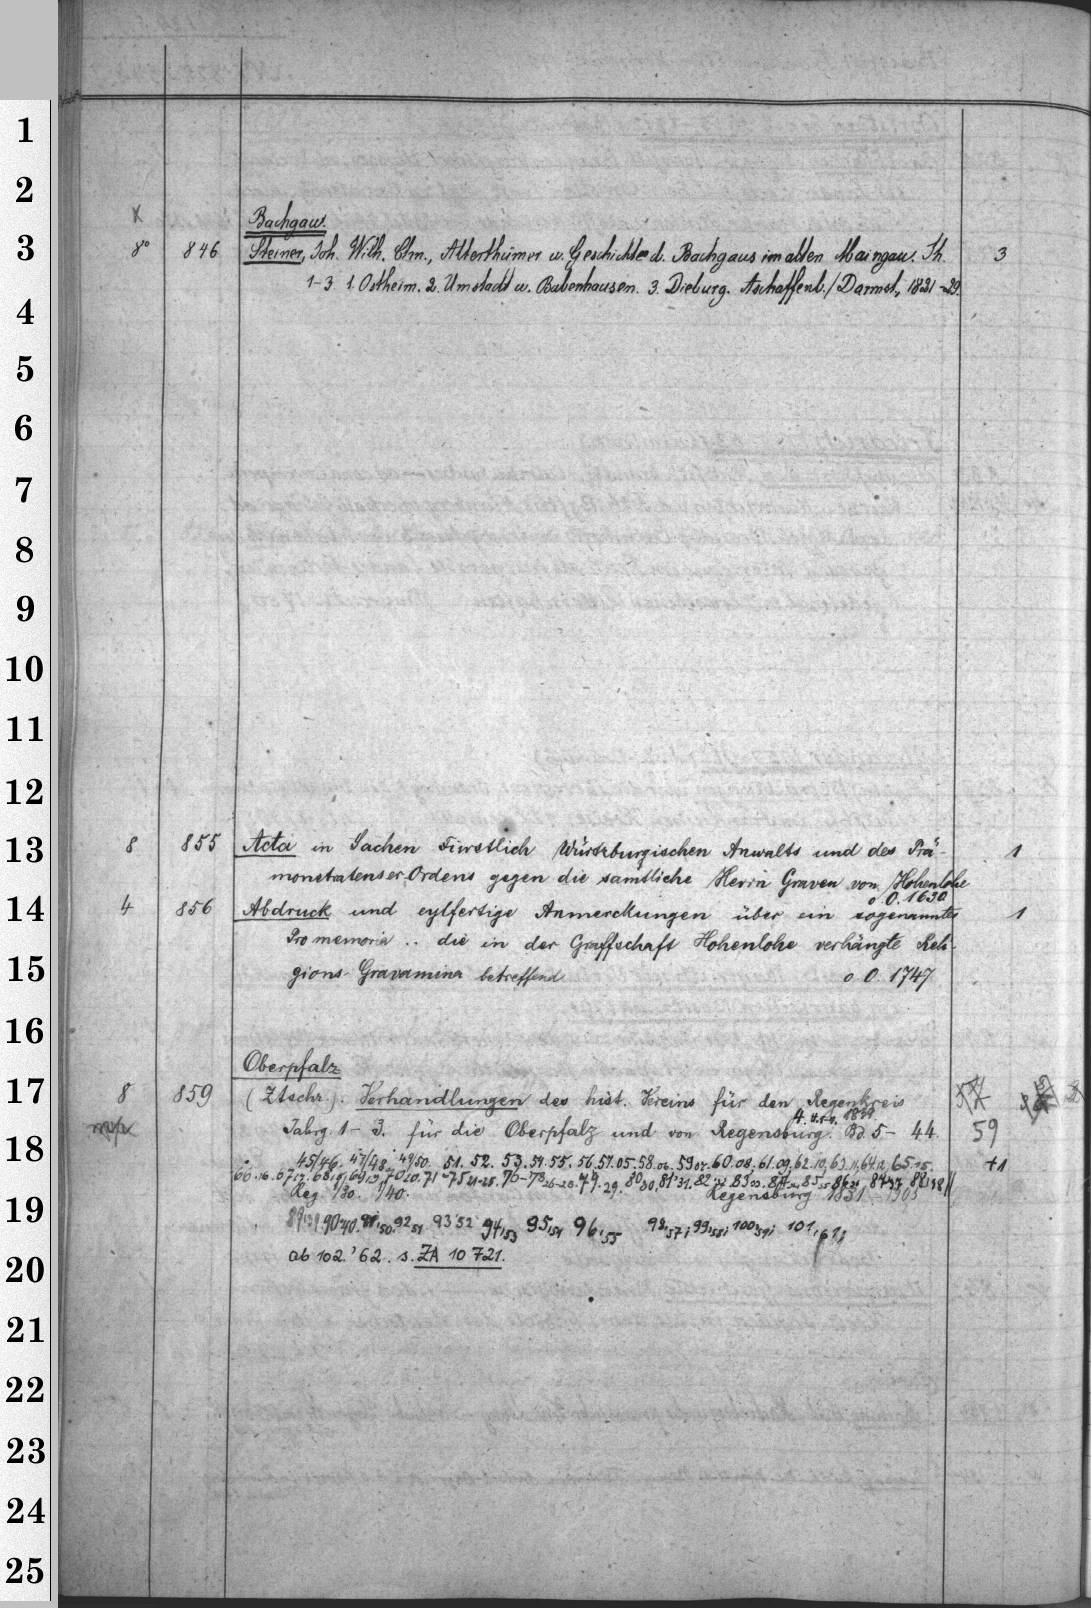 1
2
x
Bachgau.
3
8° 846 Steiner, Joh. Wilh. Chn., Alterthümer u. Geschichte d. Bachgaus im alten Maingau. Th. 3
1-3. 1. Ostheim. 2. Umstadt u. Babenhausen. 3. Dieburg. Aschaffenb./Darmst, 1821-29.
4
5
6
7
8
9
10
11
12
13
8 855 Acta in Sachen Fürstlich Würtzburgischen Anwalts und des Prä- 1
monstratenser Ordens gegen die samtliche Herrn Graven von Hohenlohe
o O. 1630
14
4 856 Abdruck und eylfertige Anmerckungen über ein sogenanntes 1
Promemoria .. die in der Graffschaft Hohenlohe verhängte Reli-
15
gions-Gravamina betreffend o O. 1747
16
Oberpfalz
17
8 859 (Ztschr.). Verhandlungen des hist. Vereins für den Regenkreis
18
Jahrg. 1-3. für die Oberpfalz und von Regensburg. Bd. 5- 44. 59
45/46. 47/48. 49/50. 51. 52. 53. 54. 55. 56. 57. 05. 58. 06. 59 07. 60. 08. 61. 09. 62. 10. 63. 11. 64 12. 65. 15. +1
19
Reg. 1/30. 1/40. Regensburg 1831-1903
89,39 90,40. 91,50. 92,51 93'52 94,53 95,54 96,55 98,57; 99,58; 100,59; 101,61;
20
ab 102.'62. s. ZA 10 721.
21
22
23
24
25